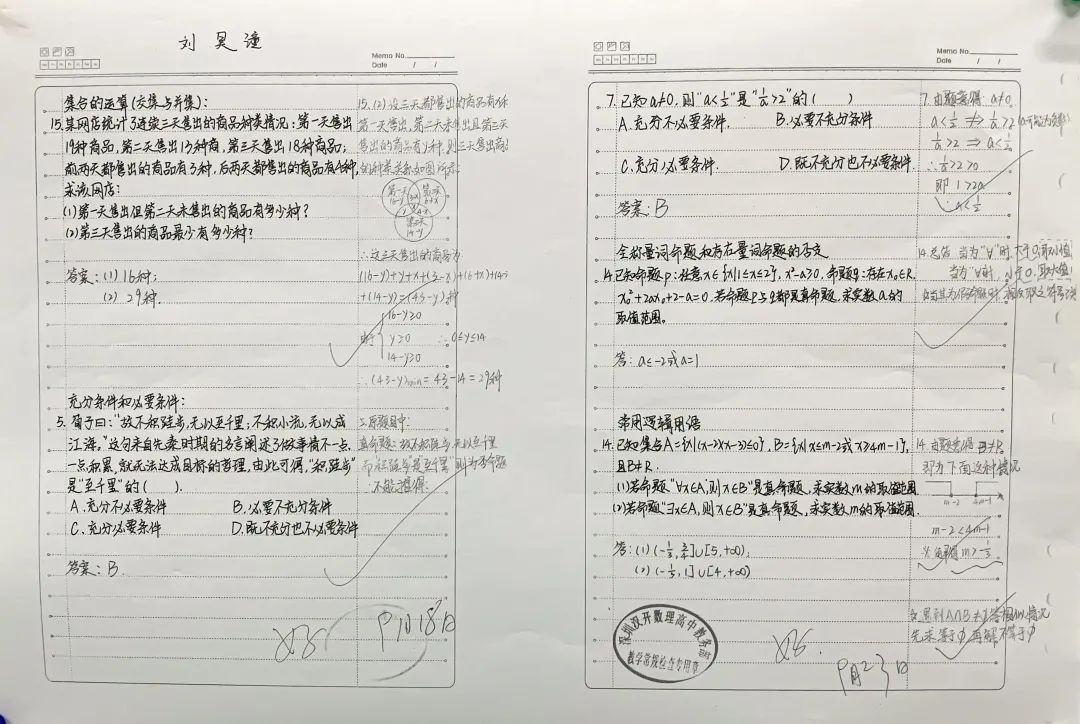 刘昊潼
Memo No.
Date / /
集合的运算(交集与并集):
15.某网店统计了连续三天售出的商品种类情况:第一天售出
19种商品,第二天售出13种商,第三天售出18种商品;
前两天都售出的商品有3种,后两天都售出的商品有4种,
求该网店:
(1)第一天售出但第二天未售出的商品有多少种?
(2)第三天售出的商品最少有多少种?
答案:(1)16种;
(2) 29种.
15.(2)设三天都售出的商品有x种
第一天售出,第二天未售出且第三天
售出的商品有y种,则三天售出商品
的种类关系如图所示:
第一天
16-y
3-x
第二天
6+x
y
x
4-x
第三天
14-y
∴这三天售出的商品为
(16-y)+y+x+(3-x)+(6+x)+(4-x)
+(14-y)=(43-y)种
16-y≥0
由于 y≥0 ∴0≤y≤14
14-y≥0
∴(43-y)min=43-14=29种
充分条件和必要条件:
5. 荀子曰:“故不积跬步,无以至千里;不积小流,无以成
江海。”这句来自先秦时期的名言阐述了做事情不一点
一点积累,就无法达成目标的哲理,由此可得,“积跬步”
是“至千里”的( ).
A.充分不必要条件 B.必要不充分条件
C.充分必要条件 D.既不充分也不必要条件
答案:B.
原题目中:
真命题:故不积跬步,无以至千里
不能推得.
9月18日
Memo No.
Date / /
7.已知a≠0,则“a<1/2”是“1/a>2”的( )
A.充分不必要条件. B.必要不充分条件
C.充分必要条件. D.既不充分也不必要条件.
答案:B
7.由题意得:a≠0,
a<1/2 ⇏ 1/a>2
1/a>2 ⇒ a<1/2
∴1/a>2>0
即 1>2a
∴a<1/2
全称量词命题和存在量词命题的否定
14.已知命题p:任意x∈{x|1≤x≤2},x²-a≥0,命题q:存在x₀∈R,
x₀²+2ax₀+2-a=0.若命题p与q都是真命题,求实数a的
取值范围。
答:a≤-2或a=1
14.总结:当为“∀”时,大于0,取小值
当为“∀”时,小于0,取大值!
常用逻辑用语
14.已知集合A={x|(x-2)(x-3)≤0},B={x|x≤m-2或x≥4m-1},
且B≠R.
(1)若命题“∀x∈A,则x∈B”是真命题,求实数m的取值范围
(2)若命题“∃x∈A,则x∈B”是真命题,求实数m的取值范围.
答:(1)(-1/3,3/4]∪[5,+∞);
(2)(-1/3,1]∪[4,+∞)
14.由题意得 B≠R.
即为下面这种情况
m-2 4m-1
m-2<4m-1
解得m>-1/3
先求等于∅,再解不等于∅
深圳汉开数理高中教务
教学常规检查专用章
9月23日